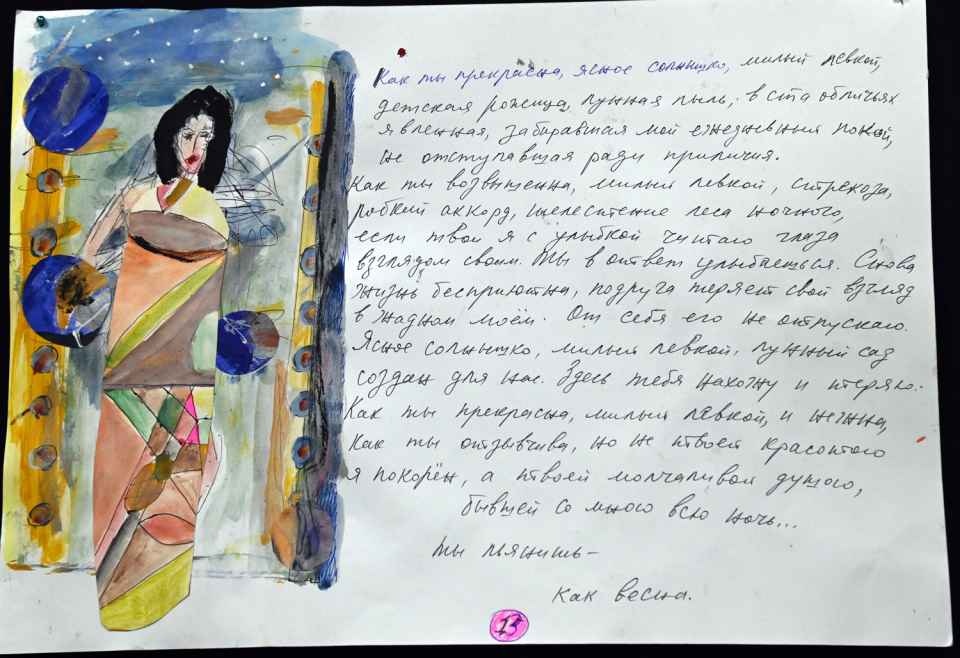 Как ты прекрасна, ясное солнышко, милый левкой,
детская рожица, лунная пыль, в ста обличьях
явленная, забиравшая мой ежедневный покой,
не отступавшая ради приличия.
Как ты возвышенна, милый левкой, стрекоза,
робкий аккорд, шелестение леса ночного,
если твои я с улыбкой читаю глаза
взглядом своим. Ты в ответ улыбаешься. Снова
жизнь бесприютна, подруга теряет свой взгляд
в жадном моём. От себя его не отпускаю.
Ясное солнышко, милый левкой, лунный сад
создан для нас. Здесь тебя нахожу и теряю.
Как ты прекрасна, милый левкой, и нежна,
как ты отзывчива, но не твоей красотою
я покорён, а твоей молчаливой душою,
бывшей со мною всю ночь...
Ты пьянишь –
как весна.